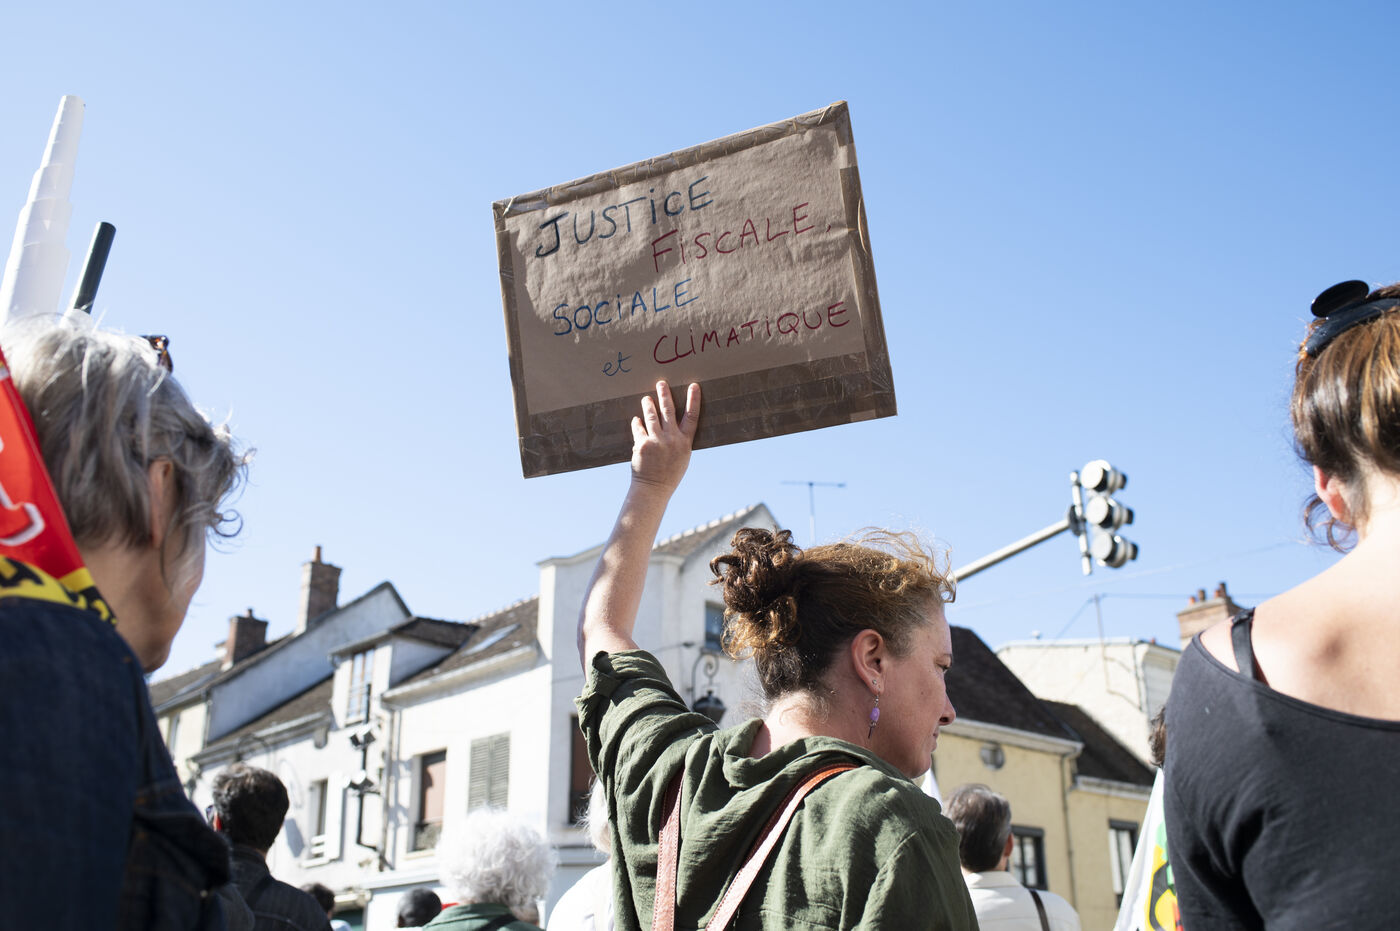 JUSTiCE
FiSCALE,
SOCiALE
et CLiMATiQUE